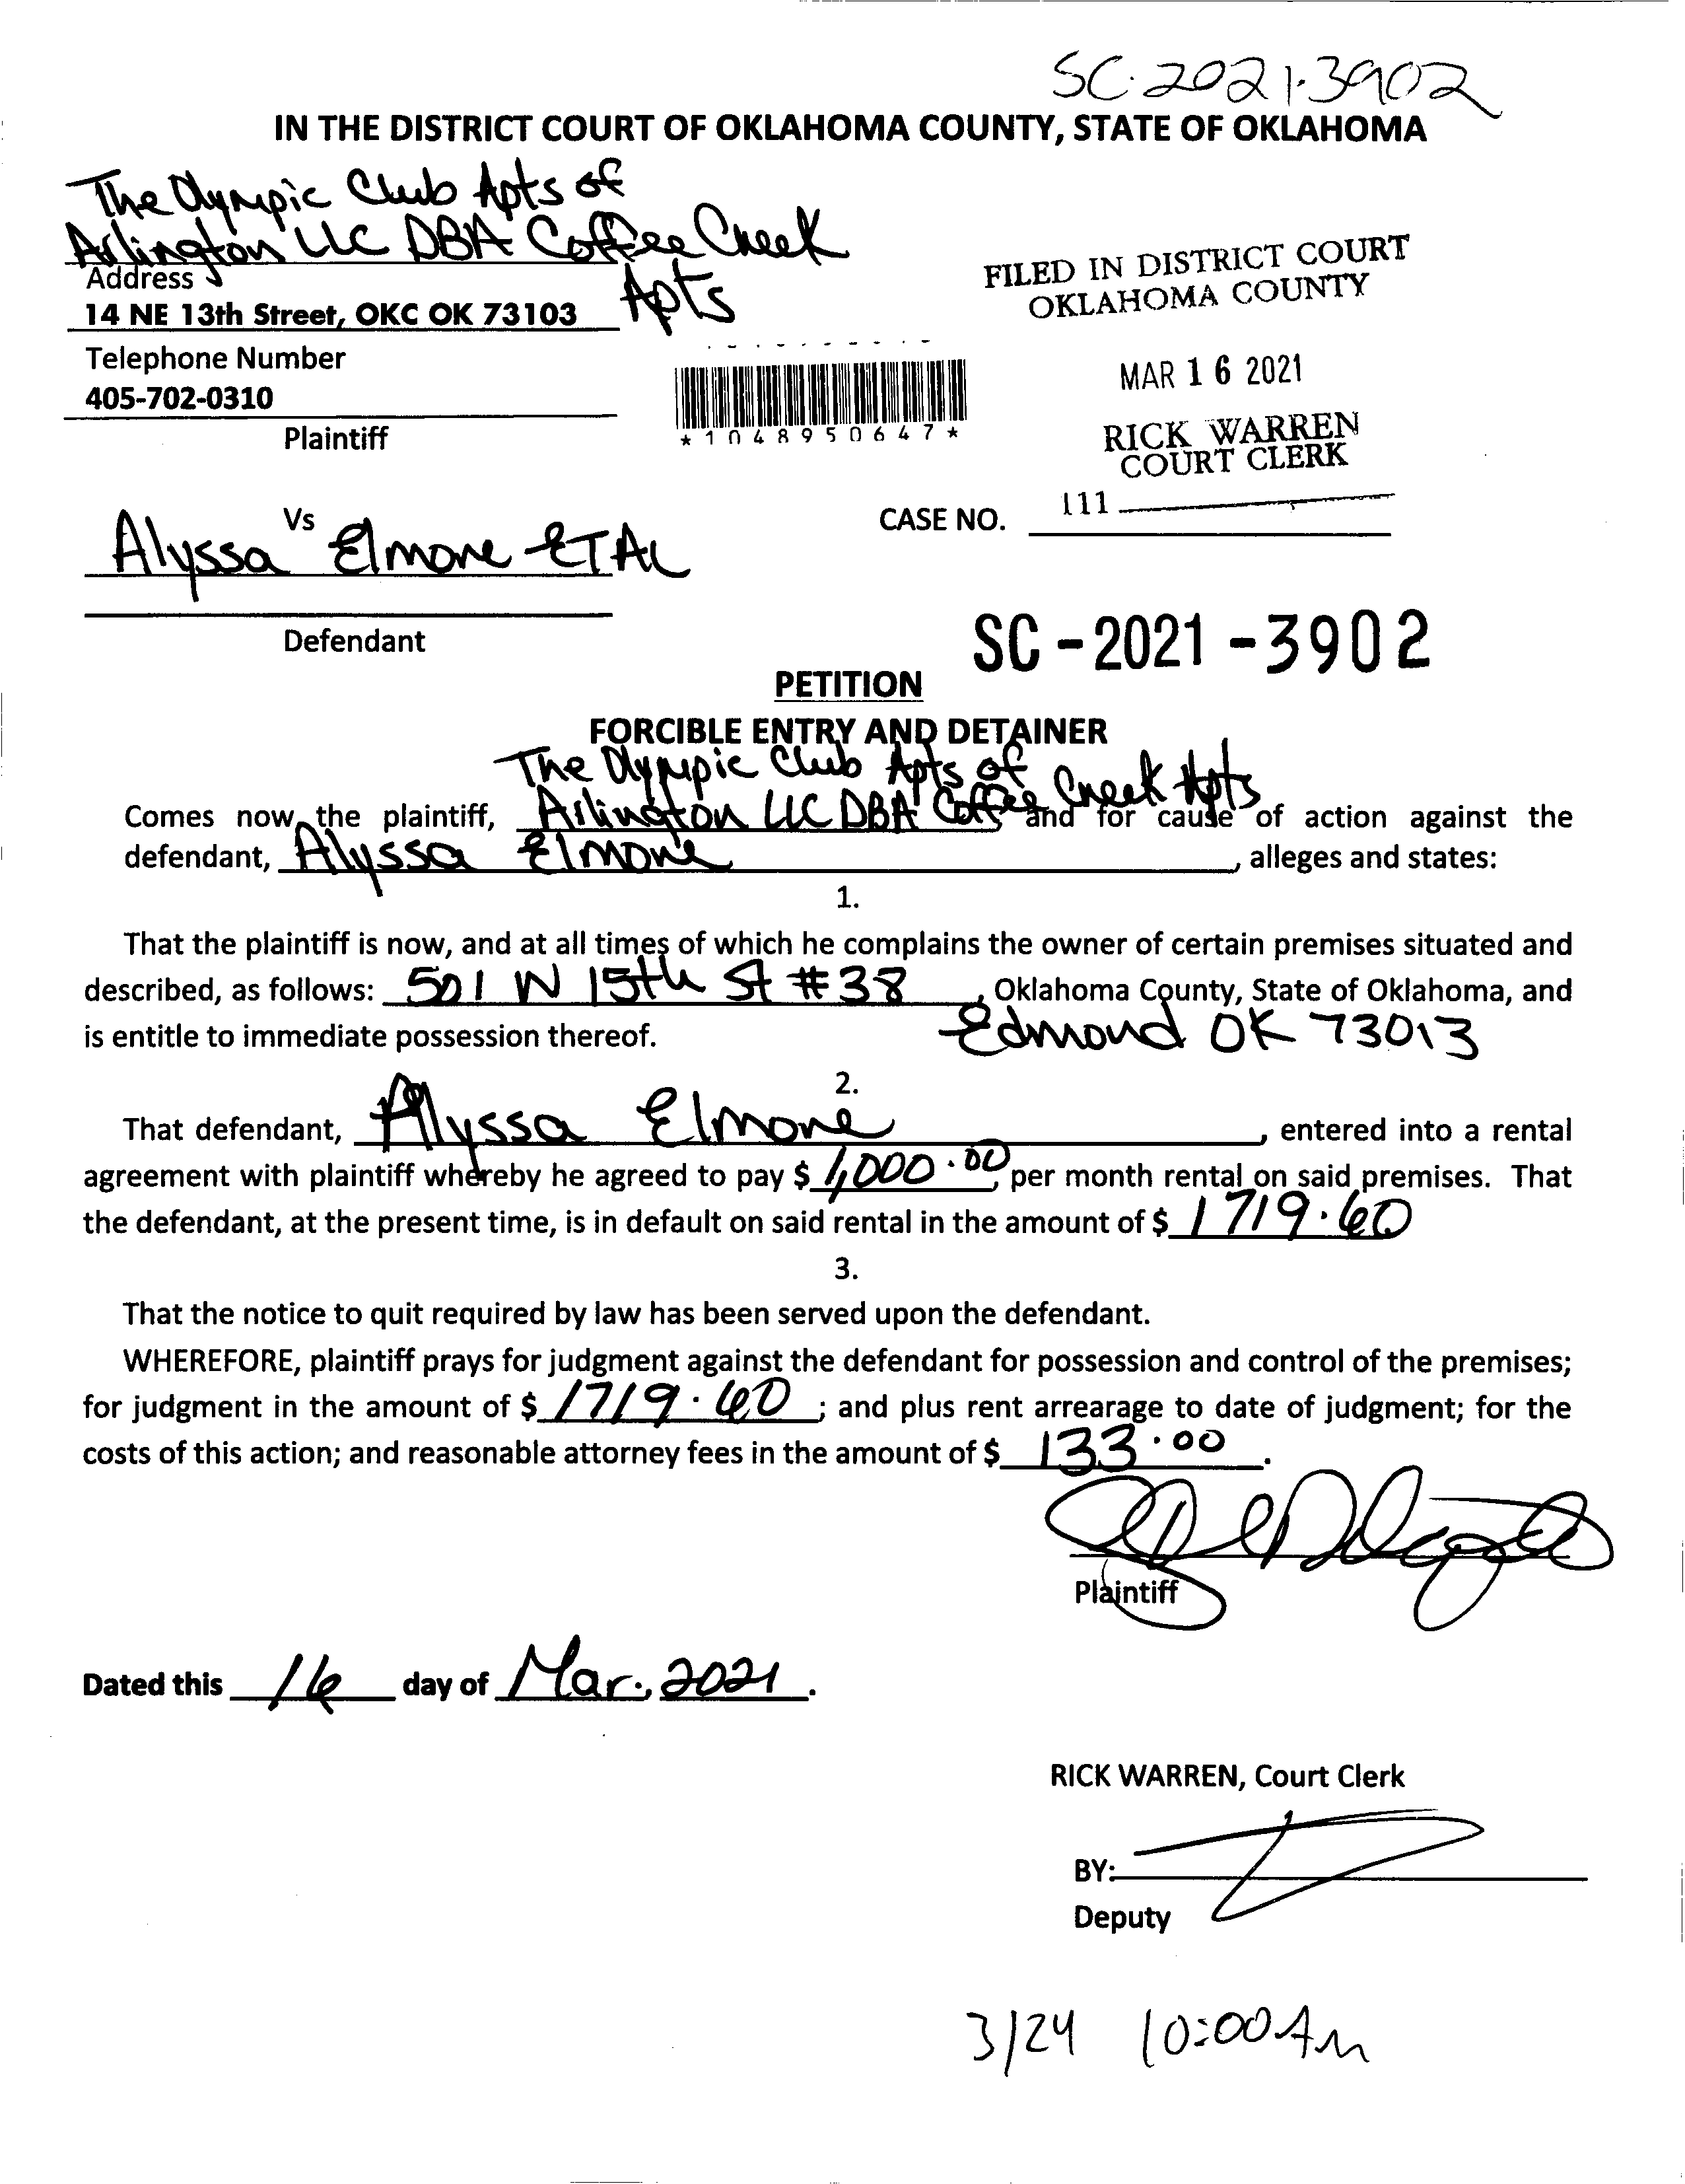 SC-2021-3902
IN THE DISTRICT COURT OF OKLAHOMA COUNTY, STATE OF OKLAHOMA
The Olympic Club Apts of
Arlington LLC DBA Coffee Creek
Apts
Address
14 NE 13th Street, OKC OK 73103
Telephone Number
405-702-0310
Plaintiff
*1048950647*
FILED IN DISTRICT COURT
OKLAHOMA COUNTY
MAR 16 2021
RICK WARREN
COURT CLERK
111
Vs
CASE NO.
Alyssa Elmore ETAL
Defendant
SC-2021-3902
PETITION
FORCIBLE ENTRY AND DETAINER
The Olympic Club Apts of
Comes now the plaintiff, Arlington LLC DBA Coffee Creek Apts and for cause of action against the
defendant, Alyssa Elmore, alleges and states:
1.
That the plaintiff is now, and at all times of which he complains the owner of certain premises situated and
described, as follows: 501 W 15th St #38, Oklahoma County, State of Oklahoma, and
is entitle to immediate possession thereof. Edmond OK 73013
2.
That defendant, Alyssa Elmore, entered into a rental
agreement with plaintiff whereby he agreed to pay $ 1,000.00, per month rental on said premises. That
the defendant, at the present time, is in default on said rental in the amount of $ 1719.60
3.
That the notice to quit required by law has been served upon the defendant.
WHEREFORE, plaintiff prays for judgment against the defendant for possession and control of the premises;
for judgment in the amount of $ 1719.60; and plus rent arrearage to date of judgment; for the
costs of this action; and reasonable attorney fees in the amount of $ 133.00.
Plaintiff
Dated this 16 day of Mar., 2021.
RICK WARREN, Court Clerk
BY:
Deputy
3/24 10:00 Am